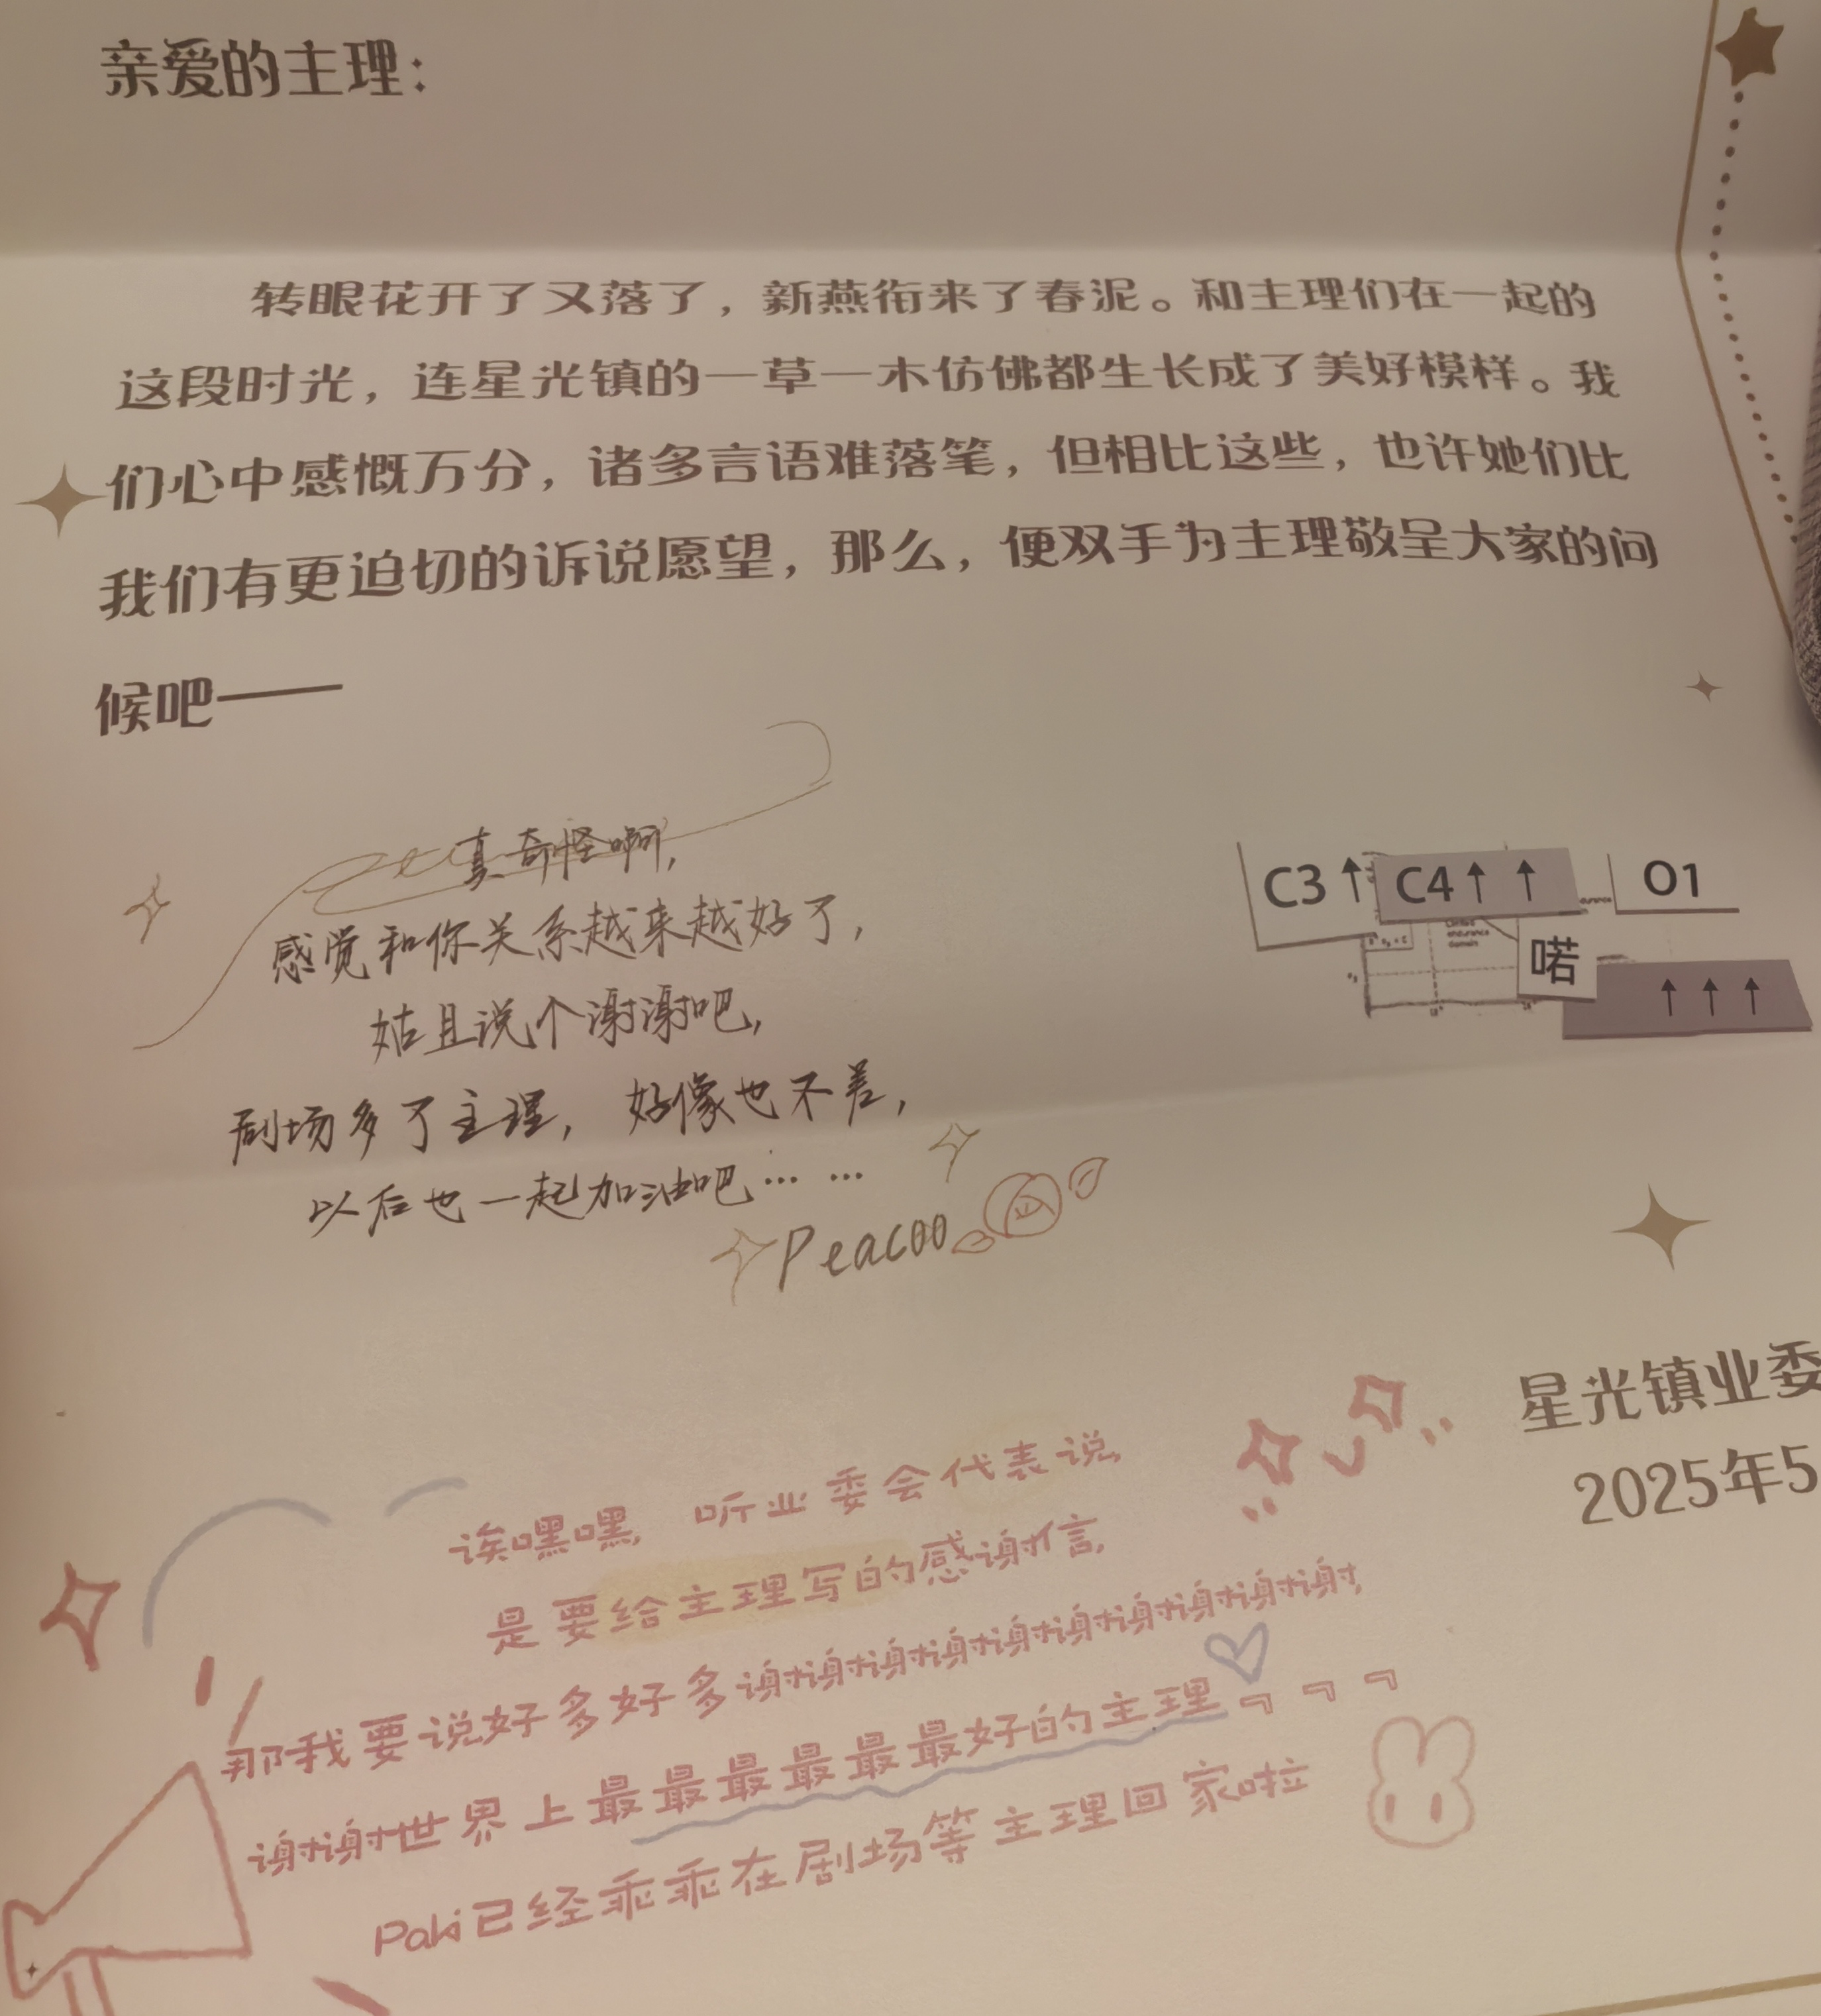 亲爱的主理：
转眼花开了又落了，新燕衔来了春泥。和主理们在一起的
这段时光，连星光镇的一草一木仿佛都生长成了美好模样。我
们心中感慨万分，诸多言语难落笔，但相比这些，也许她们比
我们有更迫切的诉说愿望，那么，便双手为主理敬呈大家的问
候吧——
真奇怪啊，
感觉和你关系越来越好了，
姑且说个谢谢吧，
剧场多了主理，好像也不差，
以后也一起加油吧……
Peacoo
C3↑ C4↑ ↑ O1
喏 ↑ ↑ ↑
星光镇业委
2025年5
诶嘿嘿，听业委会代表说，
是要给主理写的感谢信，
那我要说好多好多谢谢谢谢谢谢谢谢谢谢，
谢谢世界上最最最最最最好的主理
Paki已经乖乖在剧场等主理回家啦